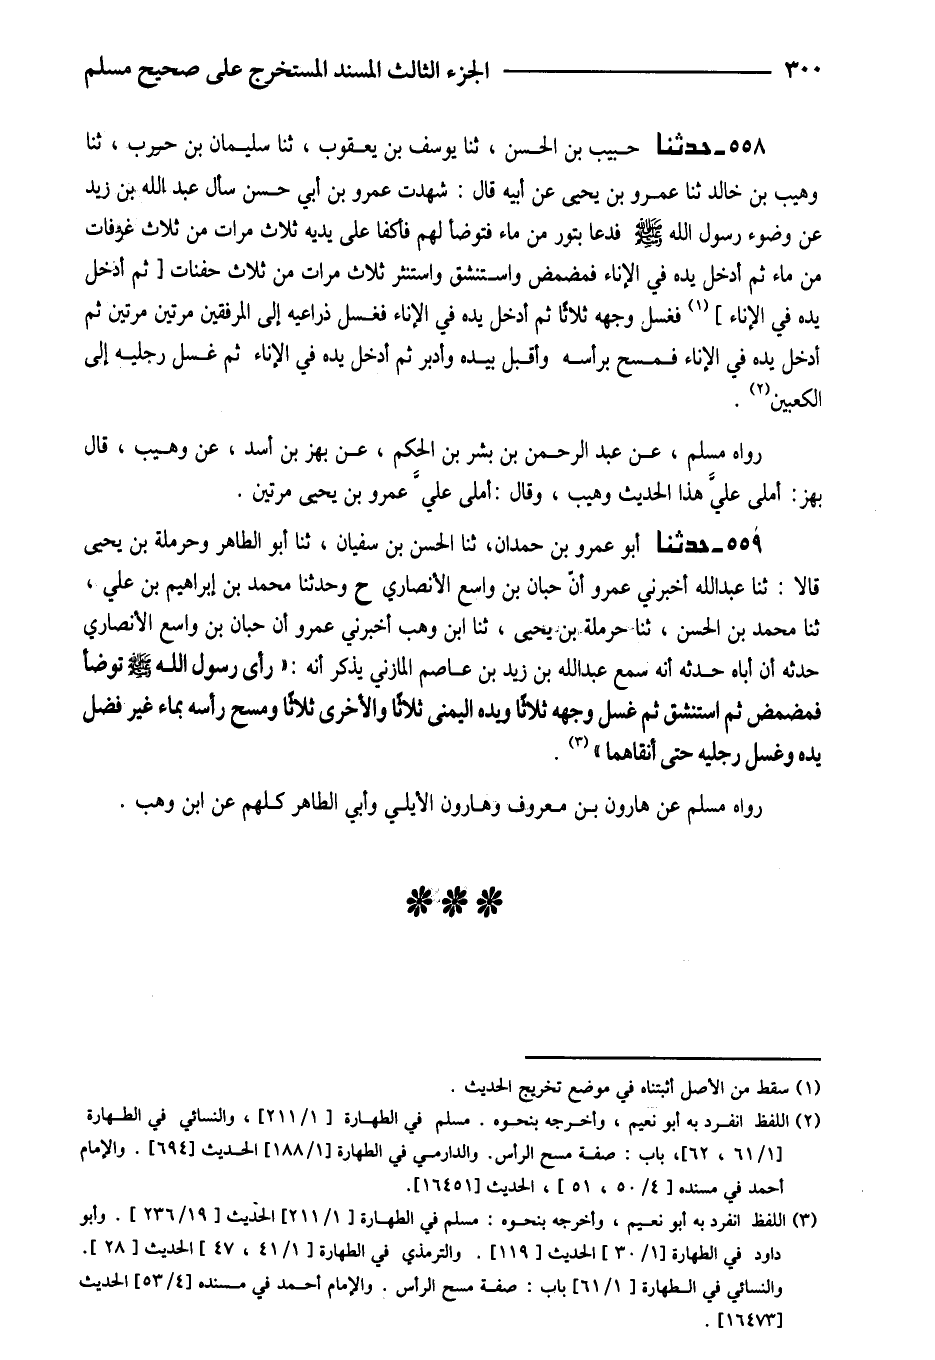 ٣٠٠ الجزء الثالث المسند المستخرج على صحيح مسلم
٥٥٨ـ حدثنا حبيب بن الحسن ، ثنا يوسف بن يعقوب ، ثنا سليمان بن حيرب ، ثنا
وهيب بن خالد ثنا عمرو بن يحيى عن أبيه قال : شهدت عمرو بن أبي حسن سأل عبد الله بن زيد
عن وضوء رسول الله ﷺ فدعا بتور من ماء فتوضأ لهم فأكفا على يديه ثلاث مرات من ثلاث غرفات
من ماء ثم أدخل يده في الإناء فمضمض واستنشق واستنثر ثلاث مرات من ثلاث حفنات [ ثم أدخل
يده في الإناء ] (١) فغسل وجهه ثلاثًا ثم أدخل يده في الإناء فغسل ذراعيه إلى المرفقين مرتين مرتين ثم
أدخل يده في الإناء فمسح برأسه وأقبل بيده وأدبر ثم أدخل يده في الإناء ثم غسل رجليه إلى
الكعبين(٢) .
رواه مسلم ، عن عبد الرحمن بن بشر بن الحكم ، عن بهز بن أسد ، عن وهيب ، قال
بهز: أملى عليَّ هذا الحديث وهيب ، وقال :أملى عليَّ عمرو بن يحيى مرتين .
٥٥٩ـ حدثنا أبو عمرو بن حمدان، ثنا الحسن بن سفيان ، ثنا أبو الطاهر وحرملة بن يحيى
قالا : ثنا عبدالله أخبرني عمرو أنّ حبان بن واسع الأنصاري ح وحدثنا محمد بن إبراهيم بن علي ،
ثنا محمد بن الحسن ، ثنا حرملة بن يحيى ، ثنا ابن وهب أخبرني عمرو أن حبان بن واسع الأنصاري
حدثه أن أباه حدثه أنه سمع عبدالله بن زيد بن عاصم المازني يذكر أنه :« رأى رسول الله ﷺ توضأ
فمضمض ثم استنشق ثم غسل وجهه ثلاثًا ويده اليمنى ثلاثًا والأخرى ثلاثًا ومسح رأسه بماء غير فضل
يده وغسل رجليه حتى أنقاهما » (٣) .
رواه مسلم عن هارون بن معروف وهارون الأيلي وأبي الطاهر كلهم عن ابن وهب .
(١) سقط من الأصل أثبتناه في موضع تخريج الحديث .
(٢) اللفظ انفرد به أبو نعيم ، وأخرجه بنحوه . مسلم في الطهارة [ ٢١١/١] ، والنسائي في الطهارة
[٦١/١ ، ٦٢]، باب : صفة مسح الرأس. والدارمي في الطهارة [١٨٨/١] الحديث [٦٩٤] . والإمام
أحمد في مسنده [ ٥٠/٤ ، ٥١ ] ، الحديث [١٦٤٥١].
(٣) اللفظ انفرد به أبو نعيم ، وأخرجه بنحوه : مسلم في الطهارة [ ٢١١/١] الحديث [ ٢٣٦/١٩ ] . وأبو
داود في الطهارة [٣٠/١ ] الحديث [ ١١٩] . والترمذي في الطهارة [ ٤١/١ ، ٤٧ ] الحديث [ ٢٨ ].
والنسائي في الطهارة [ ٦١/١] باب : صفة مسح الرأس . والإمام أحمد في مسنده [٥٣/٤] الحديث
[١٦٤٧٣] .